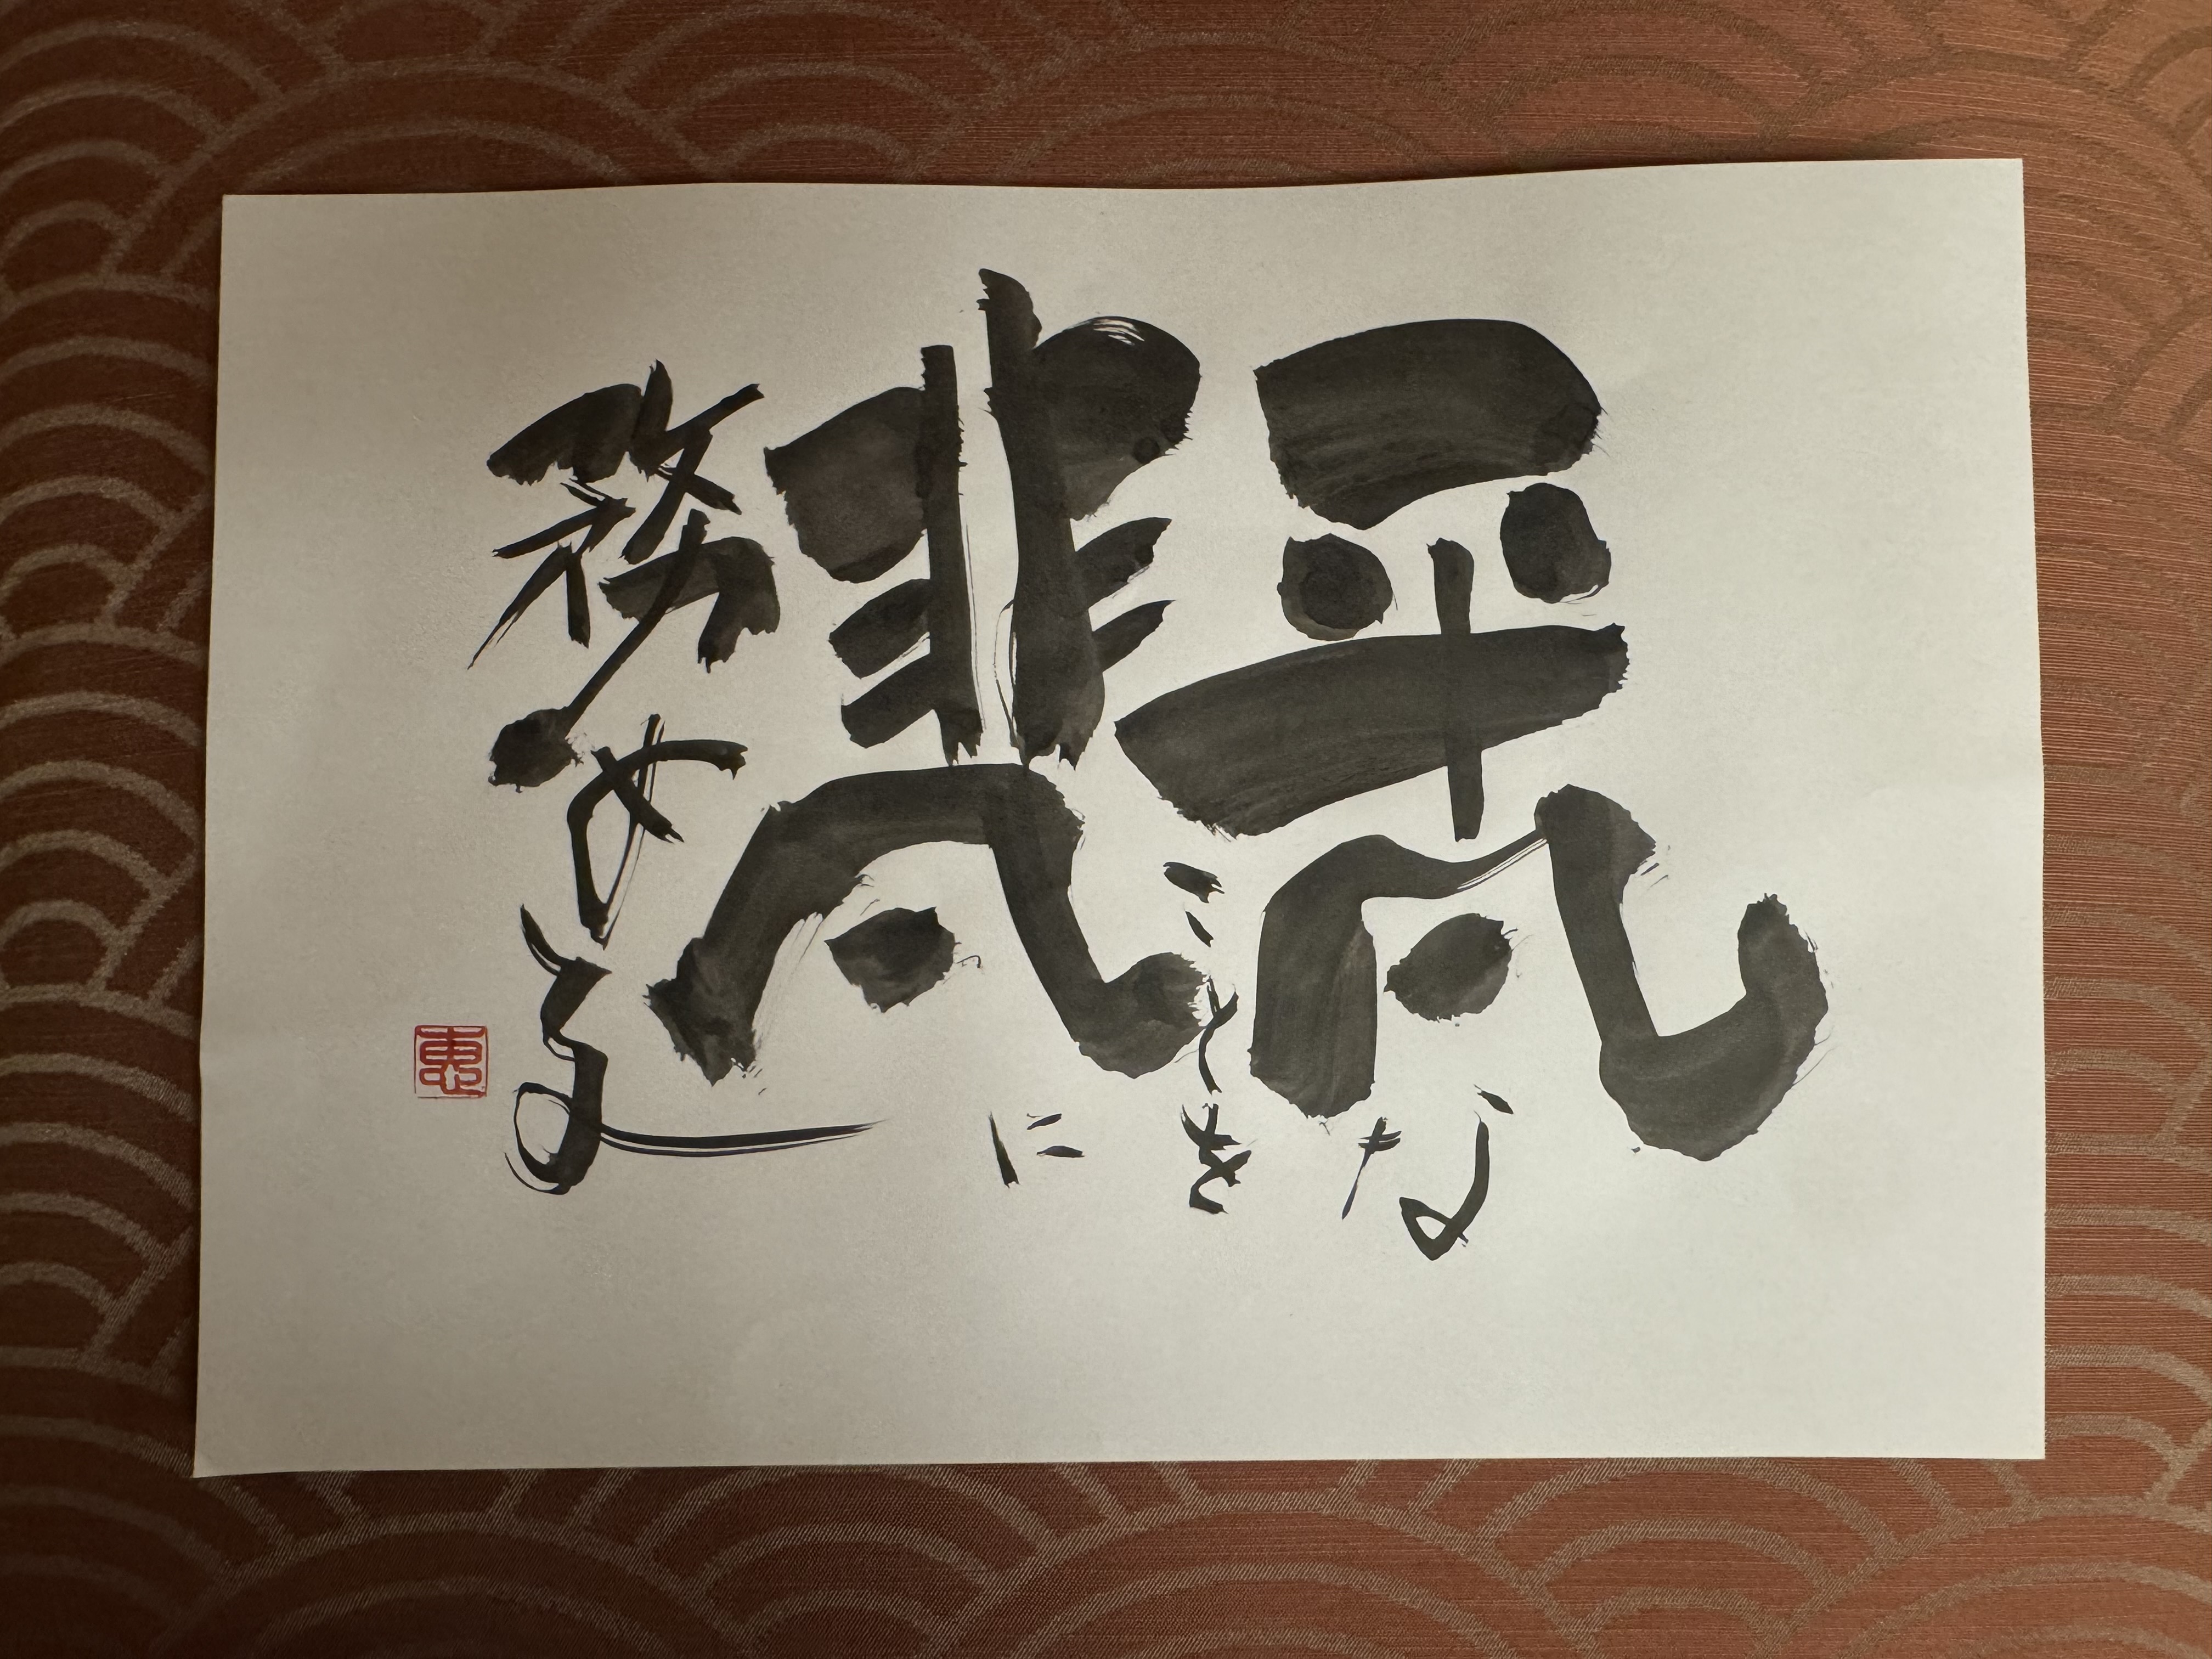 平凡な
ことを
非凡に
務める
恵